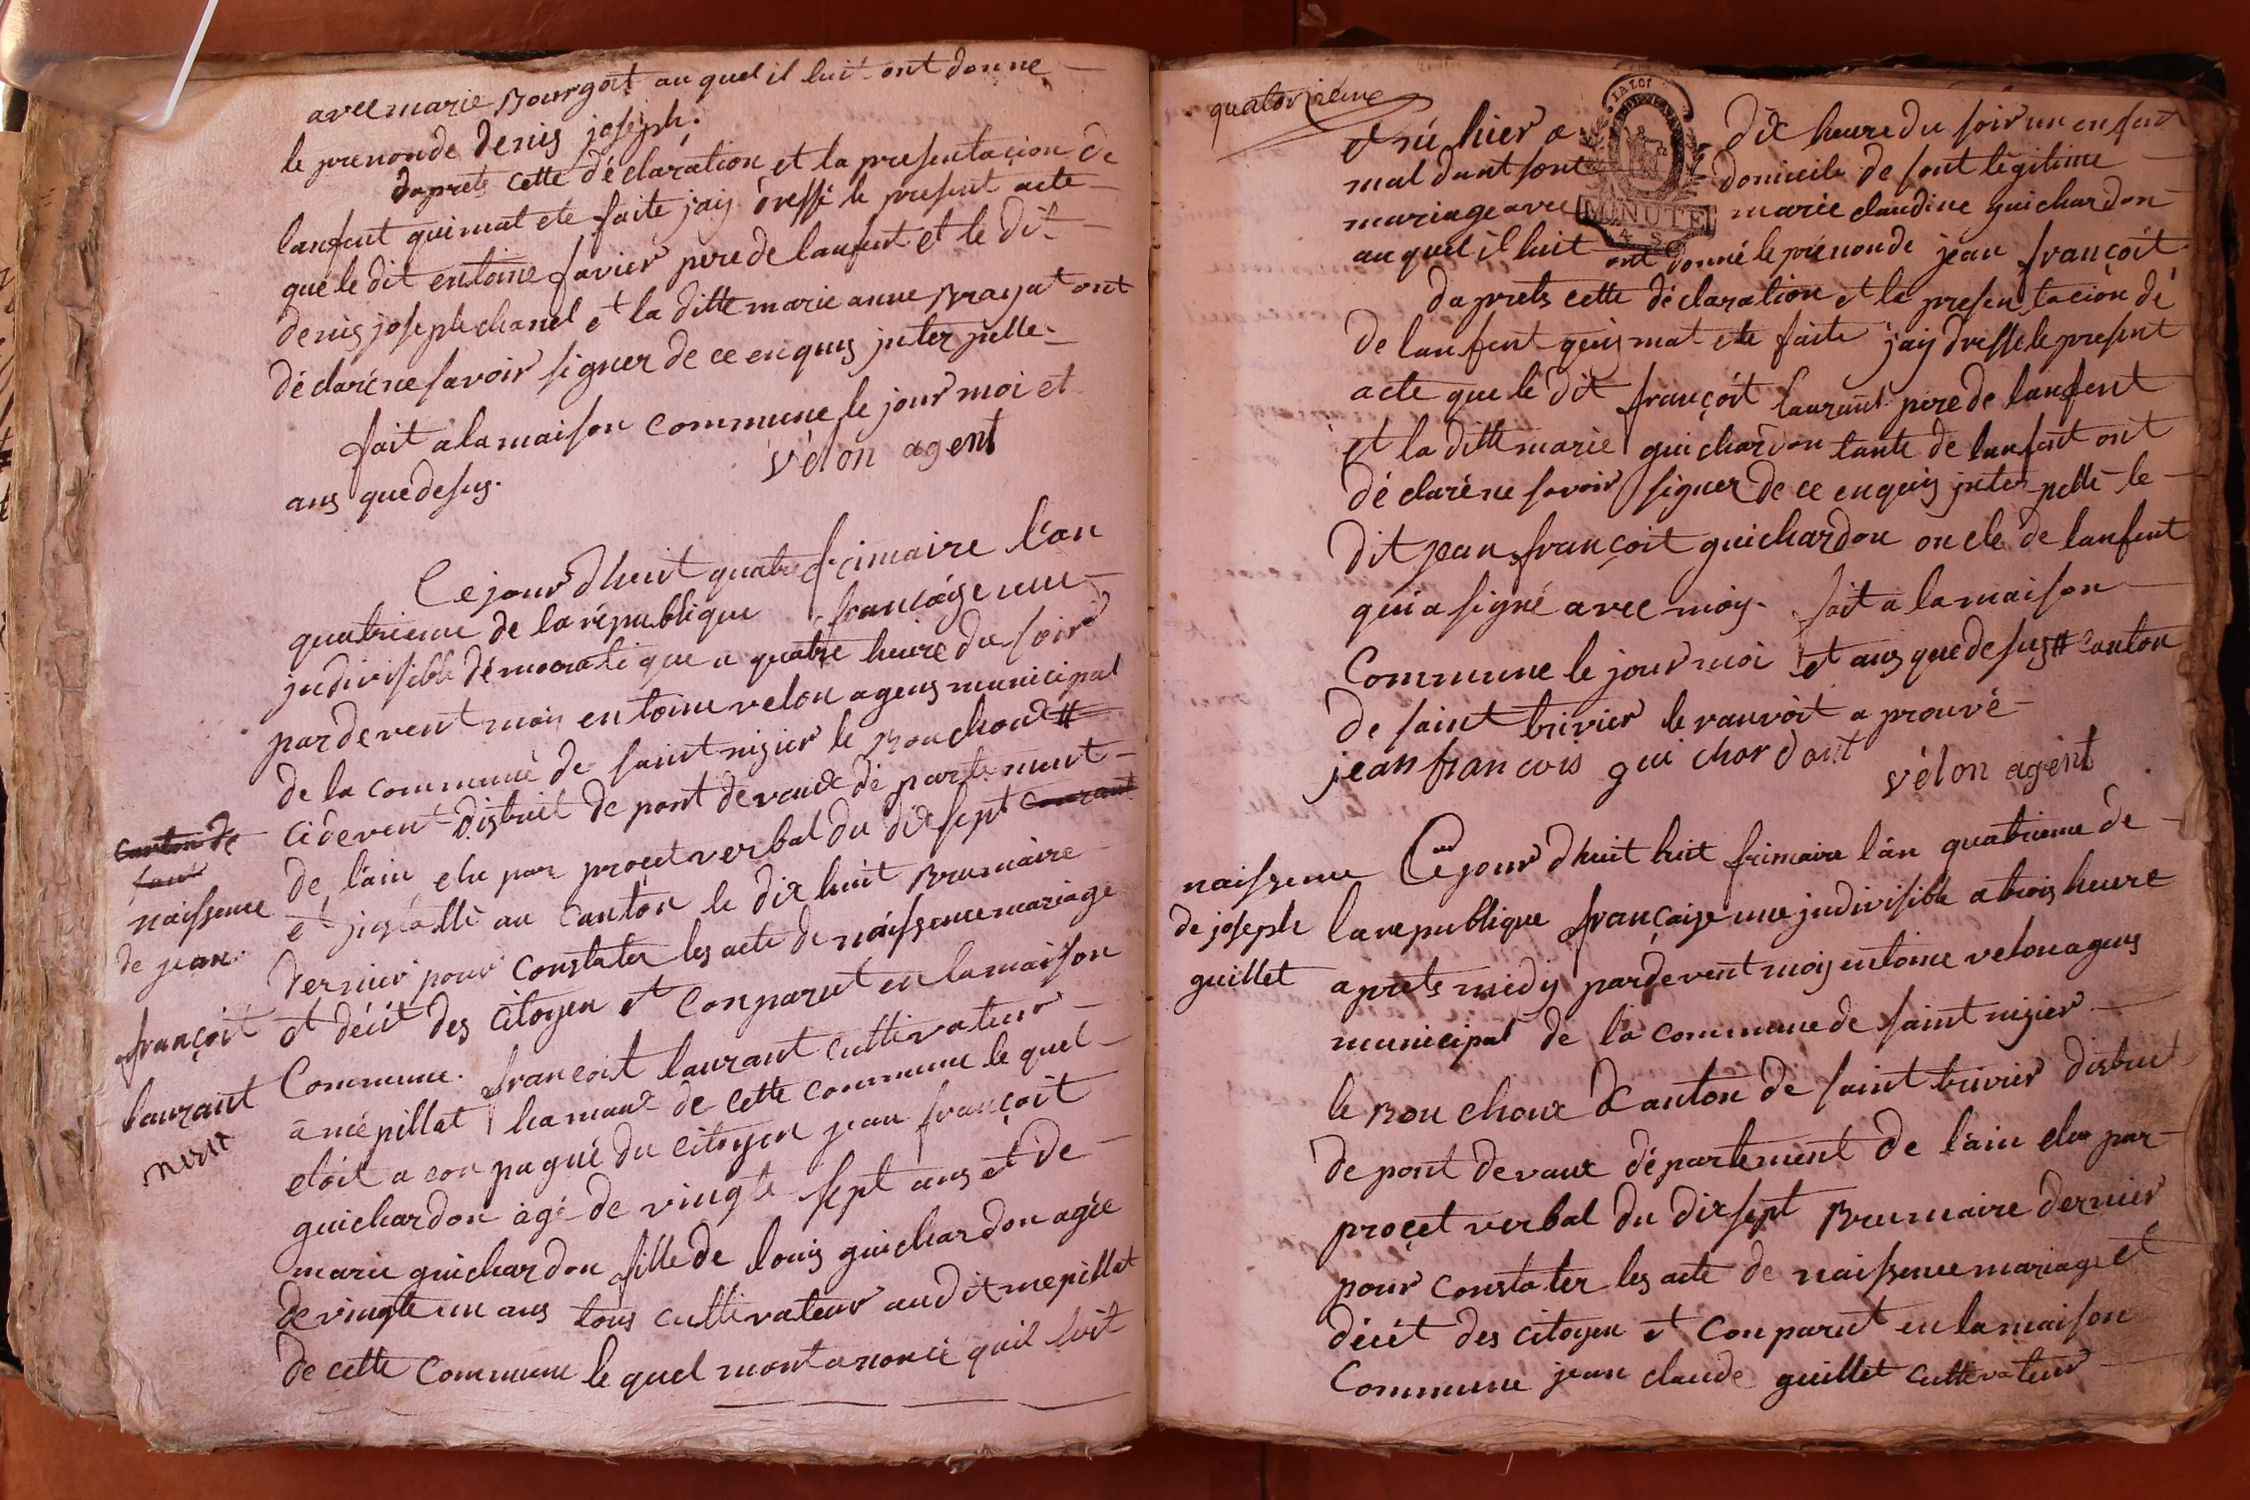 avec marie Bourgoit au quel il luit ont donne
le prenon de denis joseph.
daprets cette déclaration et la presentacion de
lanfent qui mat ete faite jaij dressé le present acte
que le dit entoine favier pere de lanfent et le dit
denis joseph chanel et la ditte marie anne Brayat ont
déclaré ne savoir signer de ce enquis juterpelle
fait a la maison commune le jour moi et
ans que desus.
vélon agent
Ce jour dhuit quatre frimaire l'an
quatrieme de la république françoise une
judivisible démocratique a quatre heure du soir
pardevent moi entoine velon agens municipal
de la commune de saint nizier le Bouchoux #
cidevent distruit de pont devaux département
de l'ain elu par procet verbal du dix sept courant
et jnstallé au canton le dix huit Brumaire
dernier pour constater les acte de naissence mariage
et décit des citoyen et conparut en la maison
Commune. francoit laurant cultivateur
a mépillat hamaux de cette commune le quel
etoit a conpagné du citoyen jean françoit
guichardon agé de vingte sept ans et de
marie guichardon fille de louis guichardon agée
de vingte un ans tous cultivateur audit mepillat
de cette commune le quel mont anoncé quil luit
canton de
saint
naissence
de jean
françoit
laurant
quatorzieme
et né hier a dix heure du soir un enfent
mal dant sont domicile de sont légitime
mariage avec marie claudine guichardon
au quel il luit ont donné le prénon de jean françoit
LA LOI
MINUTE
4 S
daprets cette déclaration et la presentacion dé
de lanfent quij mat ete faite jaij dressé le present
acte que le dit françoit laurant pere de lanfent
et la ditte marie guichardon tante de lanfent ont
déclaré ne savoir signer de ce enquis juterpellé le
dit jean françoit guichardon oncle de lanfent
qui a signé avec moy. fait a la maison
Commune le jour moi et ans que desus # canton
de saint trivier le ranvoit a prouvé
jean francois guichardont
vélon agent
naissence
de joseph
guillet
Ce jour dhuit huit frimaire lán quatrieme de
la republique françaize une judivisible a trois heure
aprets midy pardevent moij entoine velon agens
municipal de la commune de saint nizier
le Bouchoux Canton de saint trivier distruit
de pont devaux département de l'ain elu par
proçet verbal du dix sept Brumaire dernier
pour constater les acte de naissence mariage et
décit des citoyen et conparut en la maison
Commune jean claude guillet cultivateur